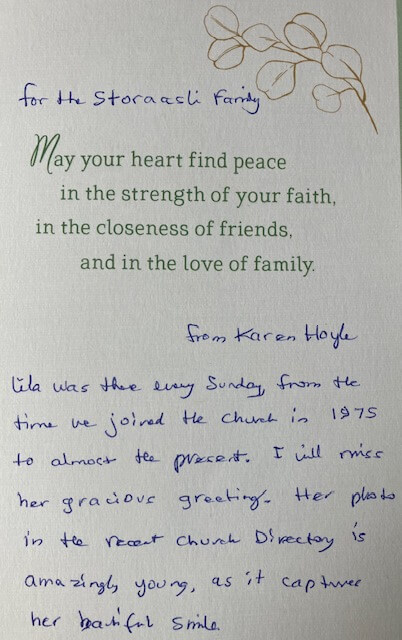 for the Storaasli Family
May your heart find peace
in the strength of your faith,
in the closeness of friends,
and in the love of family.
from Karen Hoyle
Lila was there every Sunday from the
time we joined the church in 1975
to almost the present. I will miss
her gracious greeting. Her photo
in the recent Church Directory is
amazingly young, as it captures
her beautiful smile.